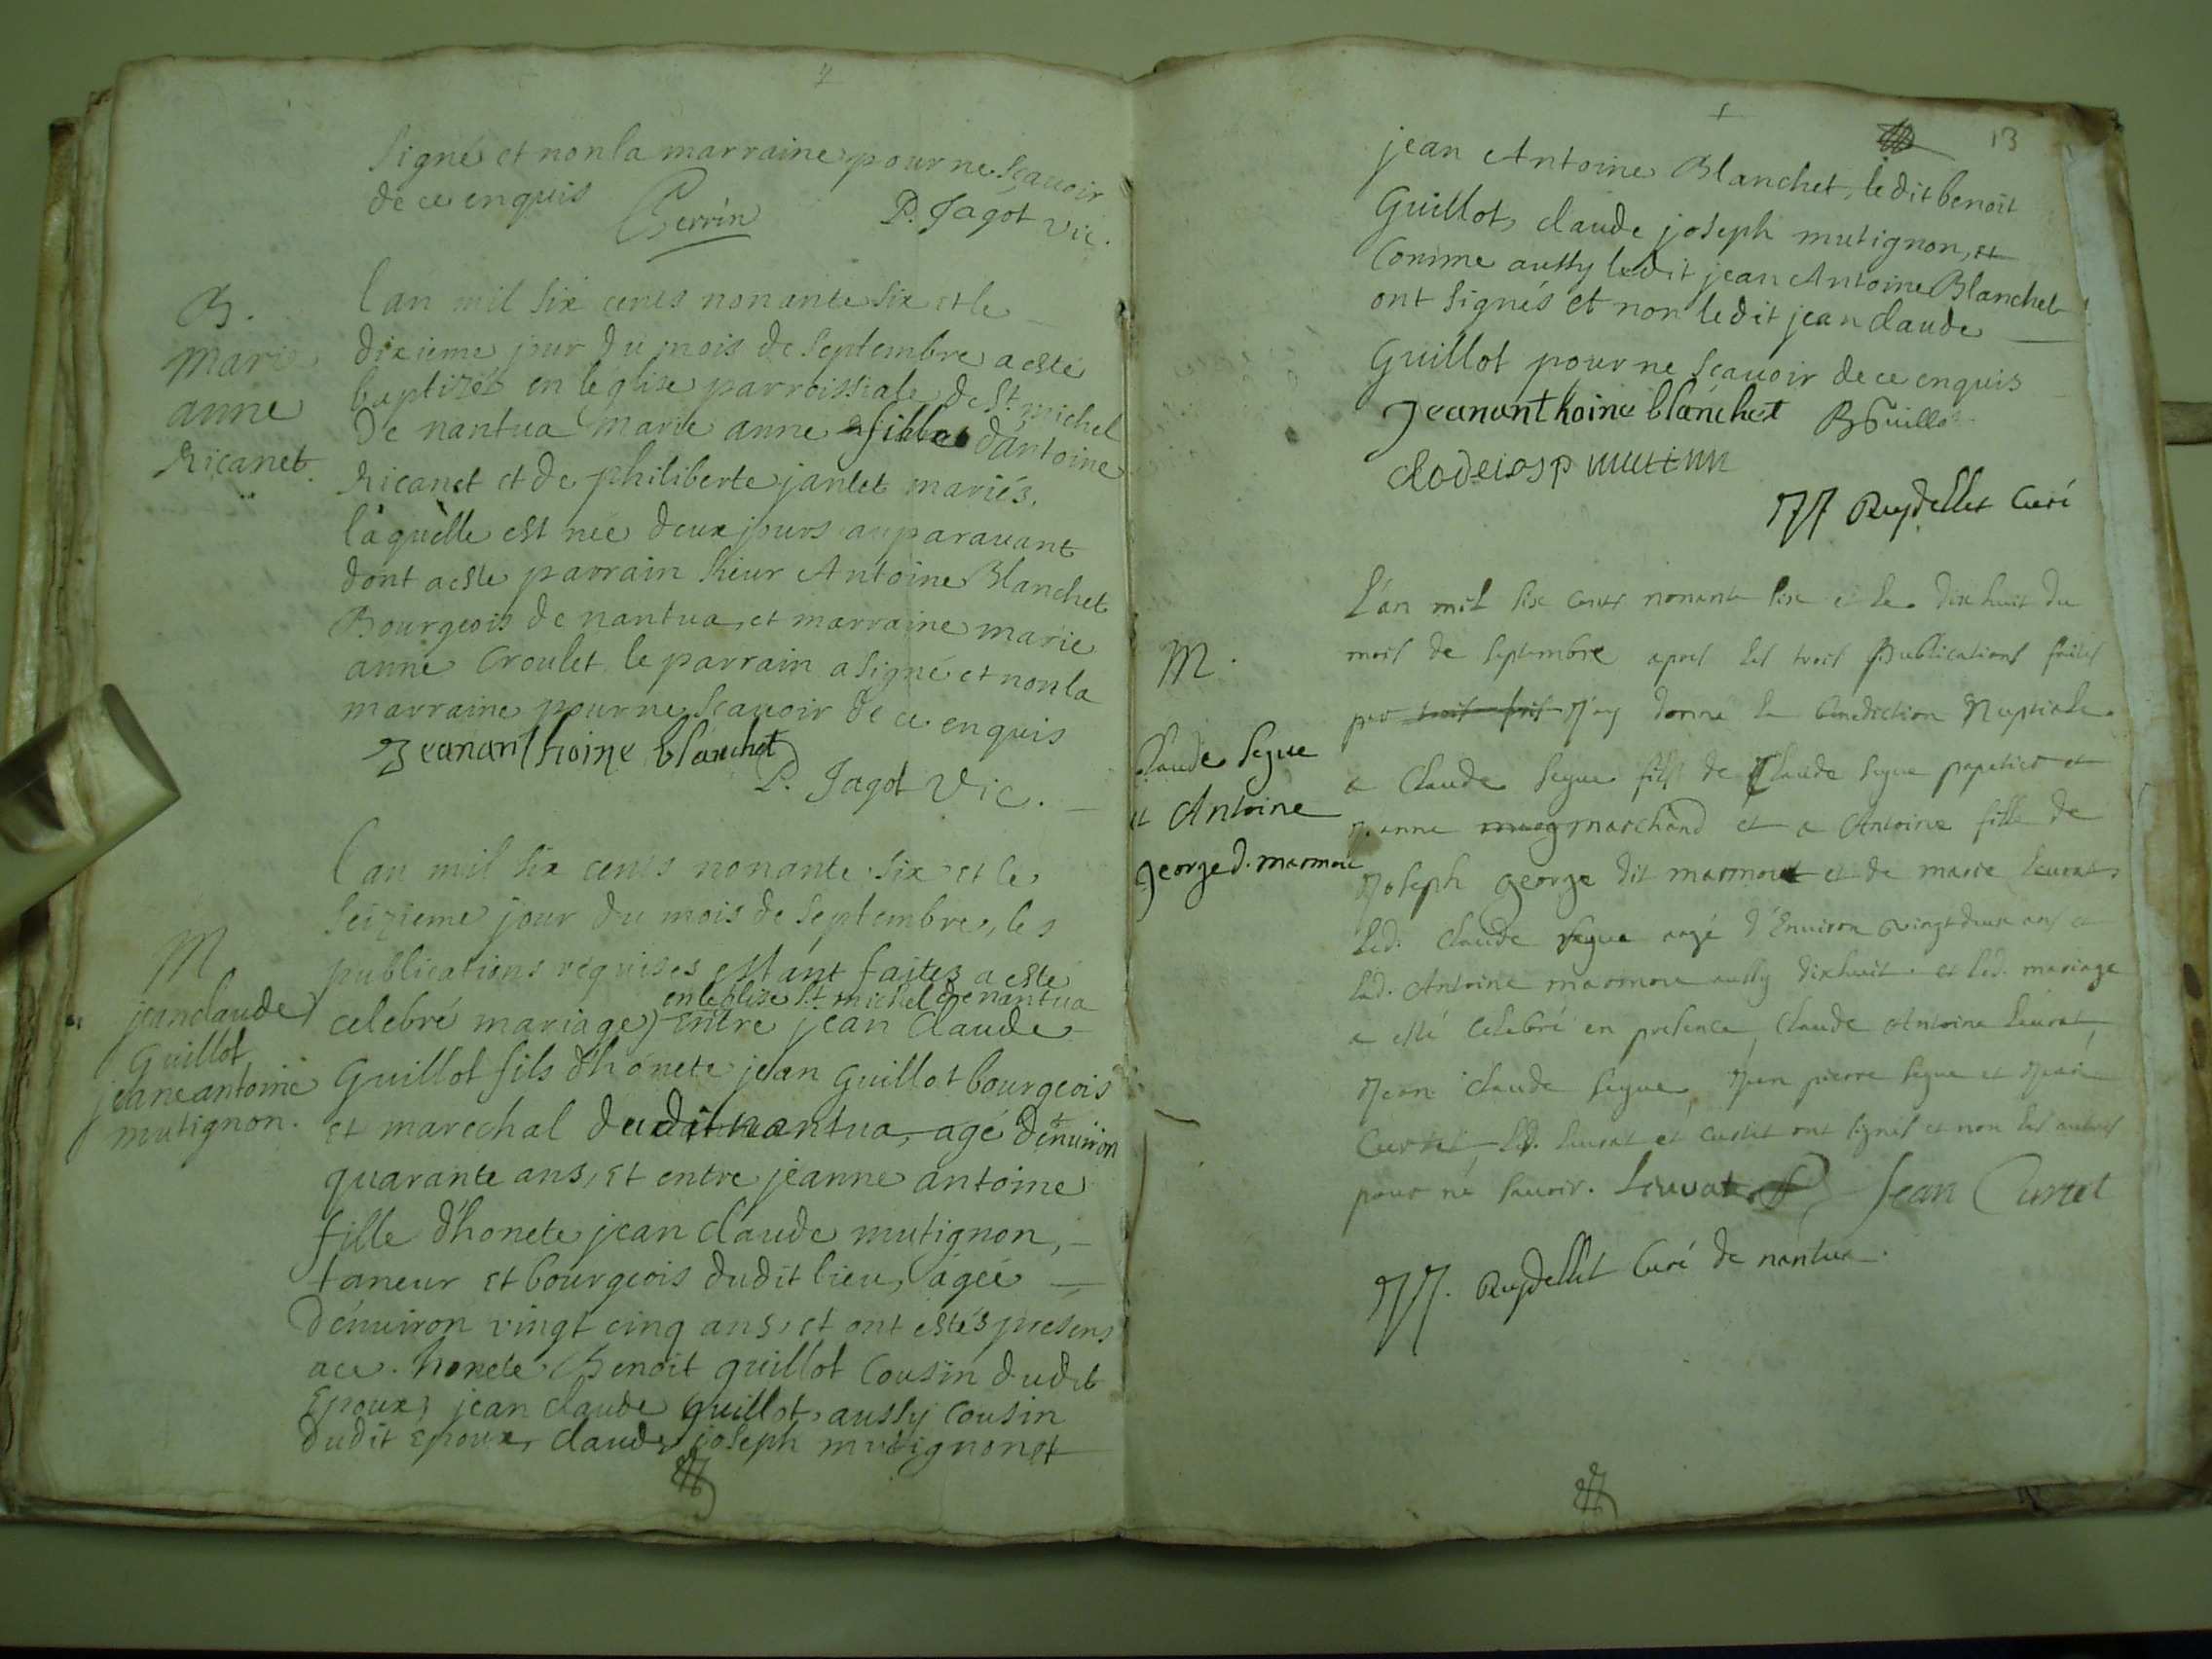 signé et non la marraine pour ne sçauoir
de ce enquis Perrin P. Jagot vic.
B.
marie
anne
Ricanet.
lan mil six cents nonante six et le
dixieme jour du mois de septembre a esté
baptizée en leglise parroissiale de St. michel
de nantua marie anne fille dantoine
Ricanet et de philiberte janlet mariés,
laquelle est née deux jours auparauant
dont a este parrain sieur Antoine Blanchet
Bourgeois de nantua, et marraine marie
anne Croulet le parrain a signé et non la
marraine pour ne sçauoir de ce enquis
Jeananthoine blanchet
P. Jagot vic.
M
jean claude
Guillot
jeane antoine
mutignon.
lan mil six cents nonante six et le
seizieme jour du mois de septembre, les
publications requises estant faites a esté
en leglise St. michel de nantua
celebré mariage entre jean Claude
Guillot fils d'hónete jean Guillot bourgeois
et marechal dudit nantua, agé dénuiron
quarante ans, et entre jeanne antoine
fille d'honete jean claude mutignon,
taneur et bourgeois dudit lieu, agée
dénuiron vingt cinq ans, et ont estés presens
a ce. honete Benoit guillot Cousin dudit
Epoux, jean claude guillot, aussy Cousin
dudit epoux, claude joseph mutignon et
13
jean Antoine Blanchet, ledit benoit
Guillot, claude joseph mutignon, et
Comme aussy ledit jean Antoine Blanchet
ont signés et non ledit jean claude
Guillot pour ne sçauoir de ce enquis
Jeananthoine blanchet BGuillo
clodeiosp
Ruydellet Curé
M.
Claude Segue
et Antoine
george d. marmou
L'an mil six cents nonante six e le dix huit du
mois de septembre apres les trois Publications faites
par trois fois J'ay donné la Benediction Nuptiale
a Claude Segue fils de Claude Segue papetier et
Janne marchand et a Antoine fille de
Joseph george dit marmout et de marie Leurat,
led. Claude Segue aagé d'Enuiron Vingt deux ans et
lad. Antoine marmou aussy dixhuit. et led. mariage
a esté Celebré en presence, Claude Antoine Leurat,
Jean Claude Segue, Jean pierre Segue et Jean
Curtet, led. Leurat et curtet ont signés et non les autres
pour ne sauoir. Leuvat Jean Curtet
Ruydellet Curé de nantua.